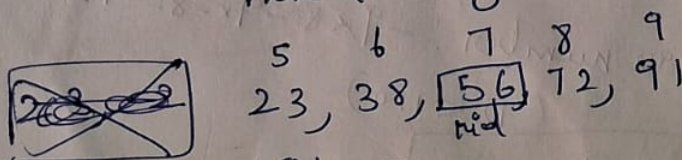 5 6 7 8 9
23, 38, 56, 72, 91
mid